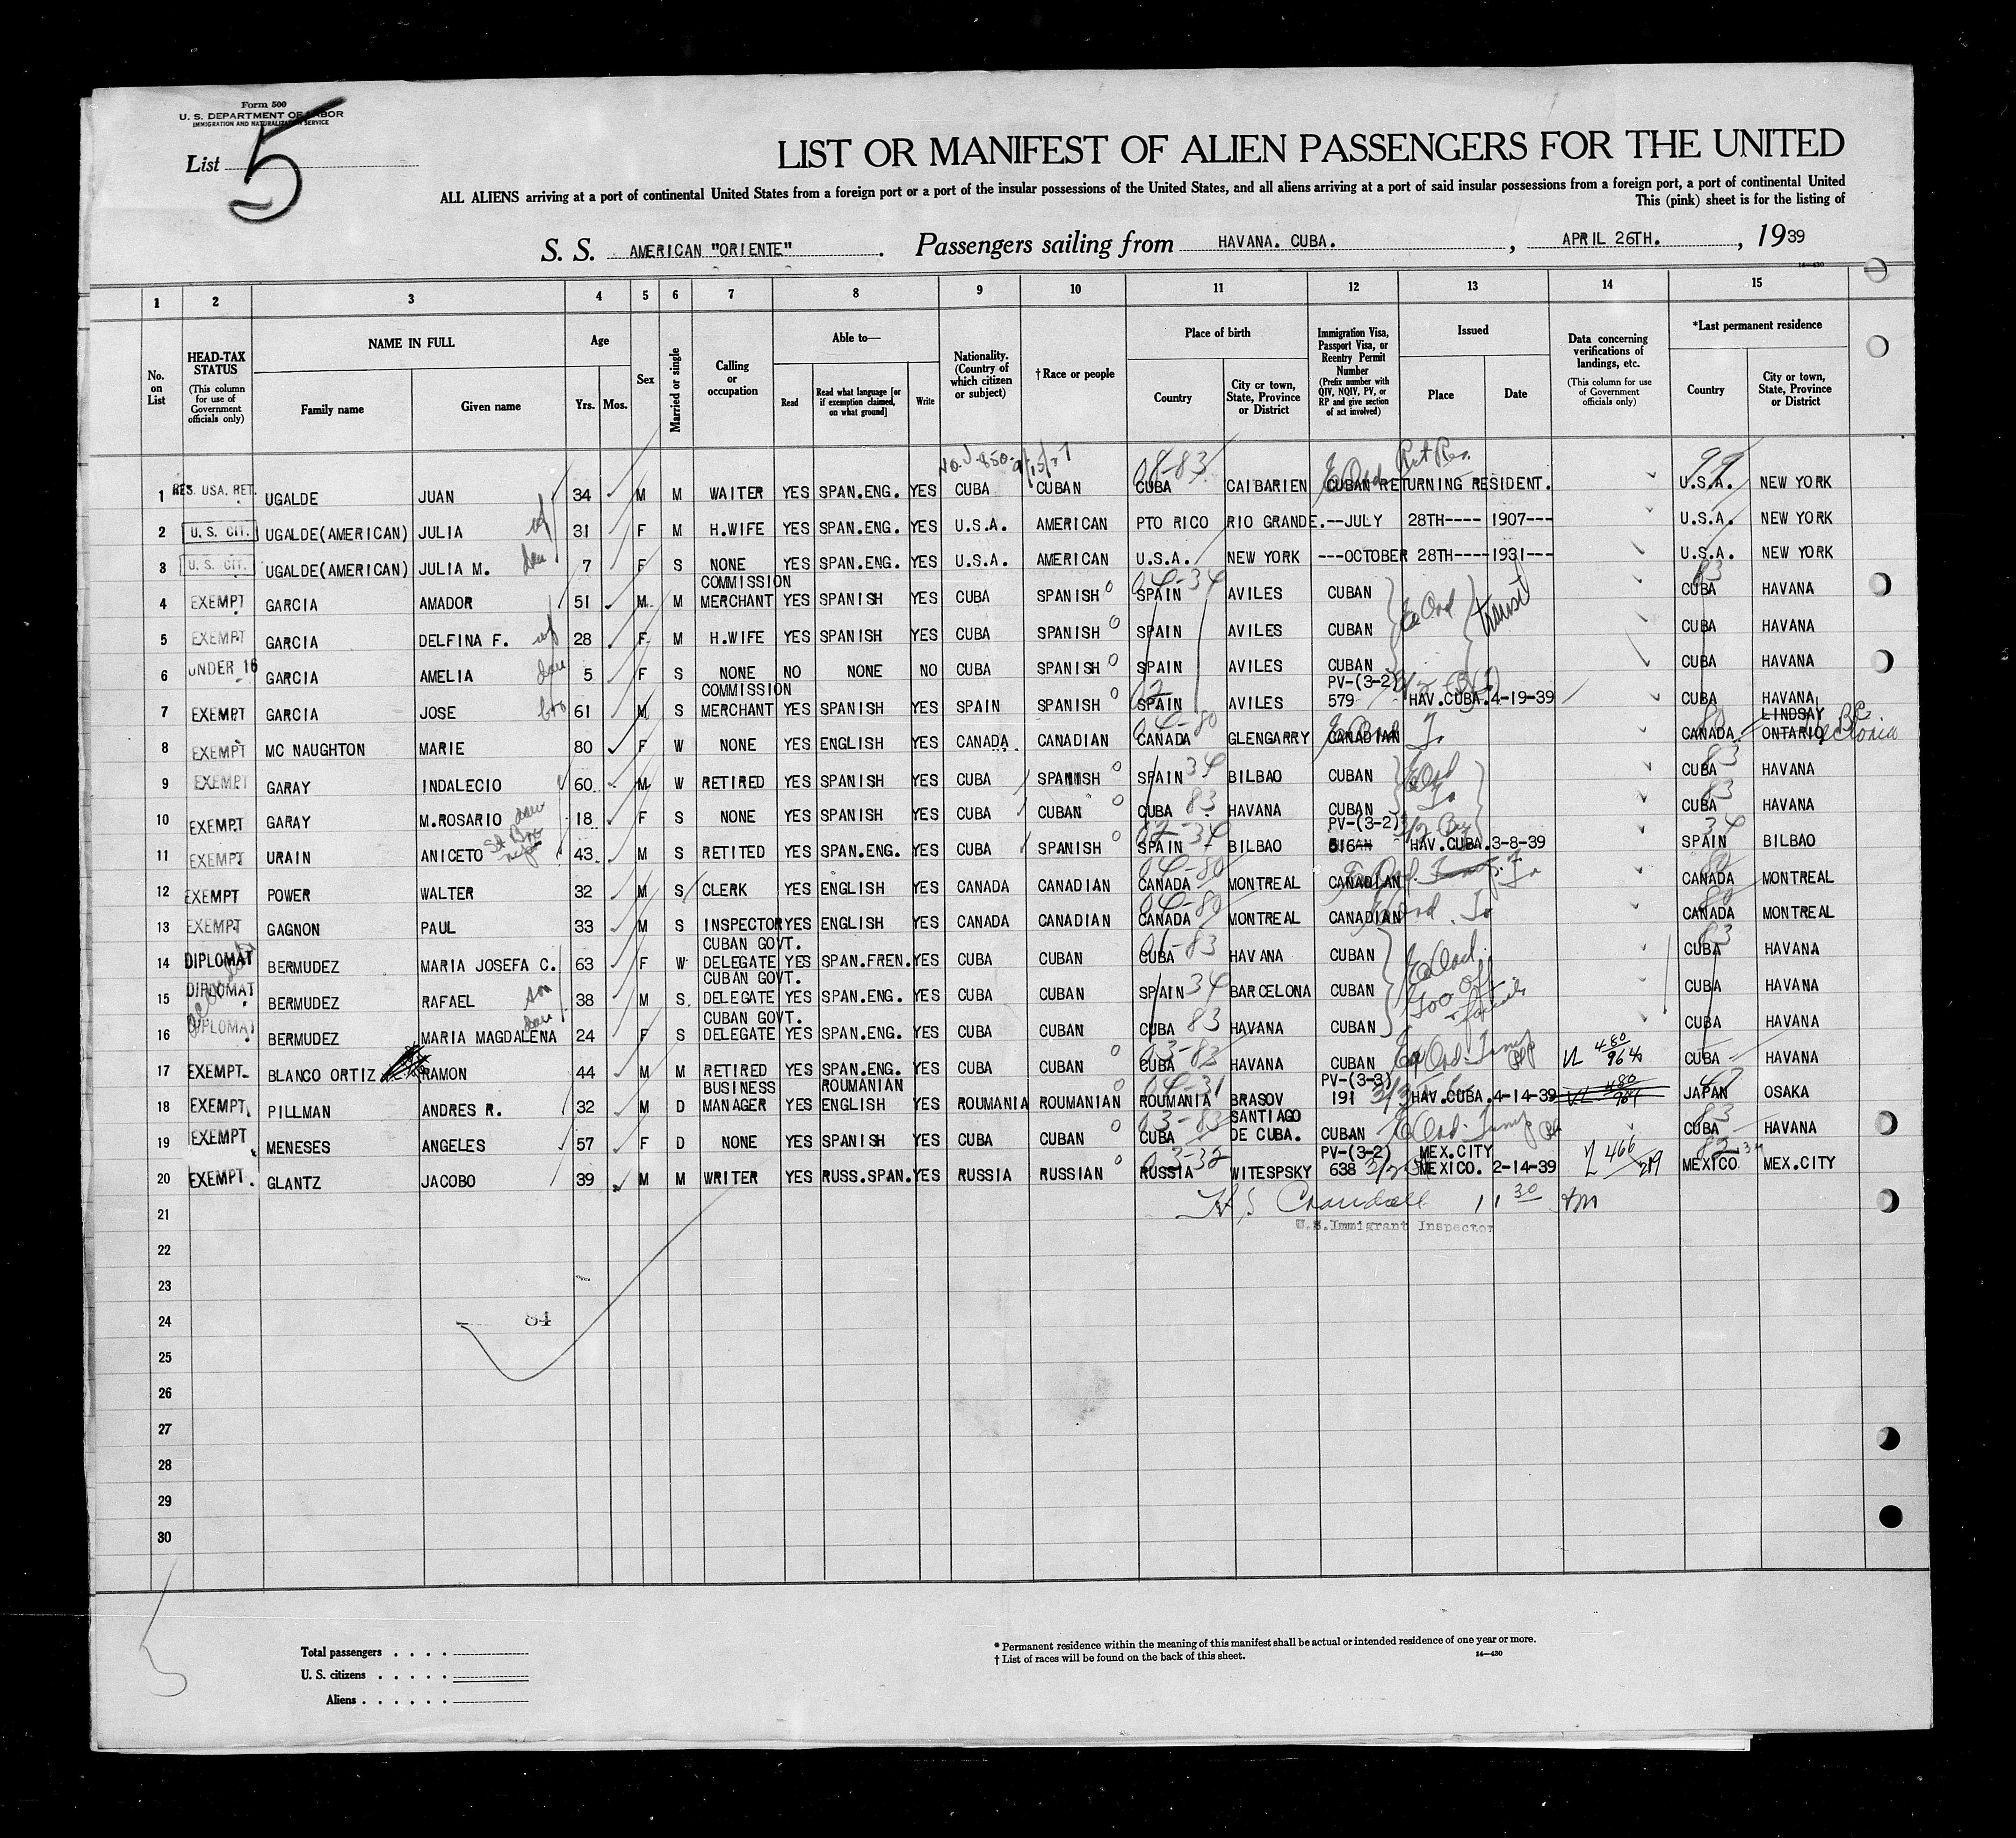 Form 500
U. S. DEPARTMENT OF LABOR
IMMIGRATION AND NATURALIZATION SERVICE
List 5
LIST OR MANIFEST OF ALIEN PASSENGERS FOR THE UNITED
ALL ALIENS arriving at a port of continental United States from a foreign port or a port of the insular possessions of the United States, and all aliens arriving at a port of said insular possessions from a foreign port, a port of continental United
This (pink) sheet is for the listing of
S. S. AMERICAN "ORIENTE". Passengers sailing from HAVANA. CUBA. , APRIL 26TH. , 1939
16—430
1 2 3 4 5 6 7 8 9 10 11 12 13 14 15
No. on List
HEAD-TAX STATUS (This column for use of Government officials only)
NAME IN FULL
Family name Given name
Age
Yrs. Mos.
Sex
Married or single
Calling or occupation
Able to—
Read
Read what language [or if exemption claimed, on what ground]
Write
Nationality. (Country of which citizen or subject)
† Race or people
Place of birth
Country
City or town, State, Province or District
Immigration Visa, Passport Visa, or Reentry Permit Number (Prefix number with QIV, NQIV, PV, or RP and give section of act involved)
Issued
Place Date
Data concerning verifications of landings, etc. (This column for use of Government officials only)
*Last permanent residence
Country
City or town, State, Province or District
1 RES. USA. RET. UGALDE JUAN 34 M M WAITER YES SPAN.ENG. YES CUBA CUBAN 04-83 CUBA CAIBARIEN CUBAN RETURNING RESIDENT. Ret Res. 99 U.S.A. NEW YORK
2 U. S. CIT. UGALDE(AMERICAN) JULIA wf 31 F M H.WIFE YES SPAN.ENG. YES U.S.A. AMERICAN PTO RICO RIO GRANDE.--JULY 28TH---- 1907--- U.S.A. NEW YORK
3 U. S. CIT. UGALDE(AMERICAN) JULIA M. dau 7 F S NONE YES SPAN.ENG. YES U.S.A. AMERICAN U.S.A. NEW YORK ---OCTOBER 28TH----1931--- U.S.A. NEW YORK
4 EXEMPT GARCIA AMADOR 51 M M COMMISSION MERCHANT YES SPANISH YES CUBA SPANISH 04-34 SPAIN AVILES CUBAN transit 83 CUBA HAVANA
5 EXEMPT GARCIA DELFINA F. wf 28 F M H.WIFE YES SPANISH YES CUBA SPANISH SPAIN AVILES CUBAN CUBA HAVANA
6 UNDER 16 GARCIA AMELIA dau 5 F S NONE NO NONE NO CUBA SPANISH SPAIN AVILES CUBAN CUBA HAVANA
7 EXEMPT GARCIA JOSE bro 61 M S COMMISSION MERCHANT YES SPANISH YES SPAIN SPANISH SPAIN AVILES PV-(3-2) 579 HAV.CUBA. 4-19-39 CUBA HAVANA
8 EXEMPT MC NAUGHTON MARIE 80 F W NONE YES ENGLISH YES CANADA. CANADIAN 04-80 CANADA GLENGARRY CANADIAN 80 CANADA LINDSAY ONTARIO
9 EXEMPT GARAY INDALECIO 60 M W RETIRED YES SPANISH YES CUBA SPANISH SPAIN 34 BILBAO CUBAN 83 CUBA HAVANA
10 EXEMPT GARAY M.ROSARIO dau 18 F S NONE YES SPANISH YES CUBA CUBAN CUBA 83 HAVANA CUBAN 83 CUBA HAVANA
11 EXEMPT URAIN ANICETO 43 M S RETITED YES SPAN.ENG. YES CUBA SPANISH 02-34 SPAIN BILBAO PV-(3-2) 516 HAV.CUBA. 3-8-39 34 SPAIN BILBAO
12 EXEMPT POWER WALTER 32 M S CLERK YES ENGLISH YES CANADA CANADIAN 04-80 CANADA MONTREAL CANADIAN 80 CANADA MONTREAL
13 EXEMPT GAGNON PAUL 33 M S INSPECTOR YES ENGLISH YES CANADA CANADIAN 04-80 CANADA MONTREAL CANADIAN 80 CANADA MONTREAL
14 DIPLOMAT BERMUDEZ MARIA JOSEFA C. 63 F W CUBAN GOVT. DELEGATE YES SPAN.FREN. YES CUBA CUBAN 01-83 CUBA HAVANA CUBAN 83 CUBA HAVANA
15 DIPLOMAT BERMUDEZ RAFAEL son 38 M S CUBAN GOVT. DELEGATE YES SPAN.ENG. YES CUBA CUBAN SPAIN 34 BARCELONA CUBAN CUBA HAVANA
16 DIPLOMAT BERMUDEZ MARIA MAGDALENA dau 24 F S CUBAN GOVT. DELEGATE YES SPAN.ENG. YES CUBA CUBAN CUBA 83 HAVANA CUBAN CUBA HAVANA
17 EXEMPT BLANCO ORTIZ RAMON 44 M M RETIRED YES SPAN.ENG. YES CUBA CUBAN 03-83 CUBA HAVANA CUBAN VL 480/964 CUBA HAVANA
18 EXEMPT PILLMAN ANDRES R. 32 M D BUSINESS MANAGER YES ROUMANIAN ENGLISH YES ROUMANIA ROUMANIAN 04-31 ROUMANIA BRASOV PV-(3-3) 191 HAV.CUBA. 4-14-39 47 JAPAN OSAKA
19 EXEMPT MENESES ANGELES 57 F D NONE YES SPANISH YES CUBA CUBAN 03-83 CUBA SANTIAGO DE CUBA. CUBAN 83 CUBA HAVANA
20 EXEMPT GLANTZ JACOBO 39 M M WRITER YES RUSS.SPAN. YES RUSSIA RUSSIAN 03-32 RUSSIA WITESPSKY PV-(3-2) 638 MEX.CITY MEXICO. 2-14-39 82 MEXICO MEX.CITY
21 11 30 AM
U.S.Immigrant Inspector
22
23
24 84
25
26
27
28
29
30
Total passengers . . . .
U. S. citizens . . . . .
Aliens . . . . . .
* Permanent residence within the meaning of this manifest shall be actual or intended residence of one year or more.
† List of races will be found on the back of this sheet.
14—430